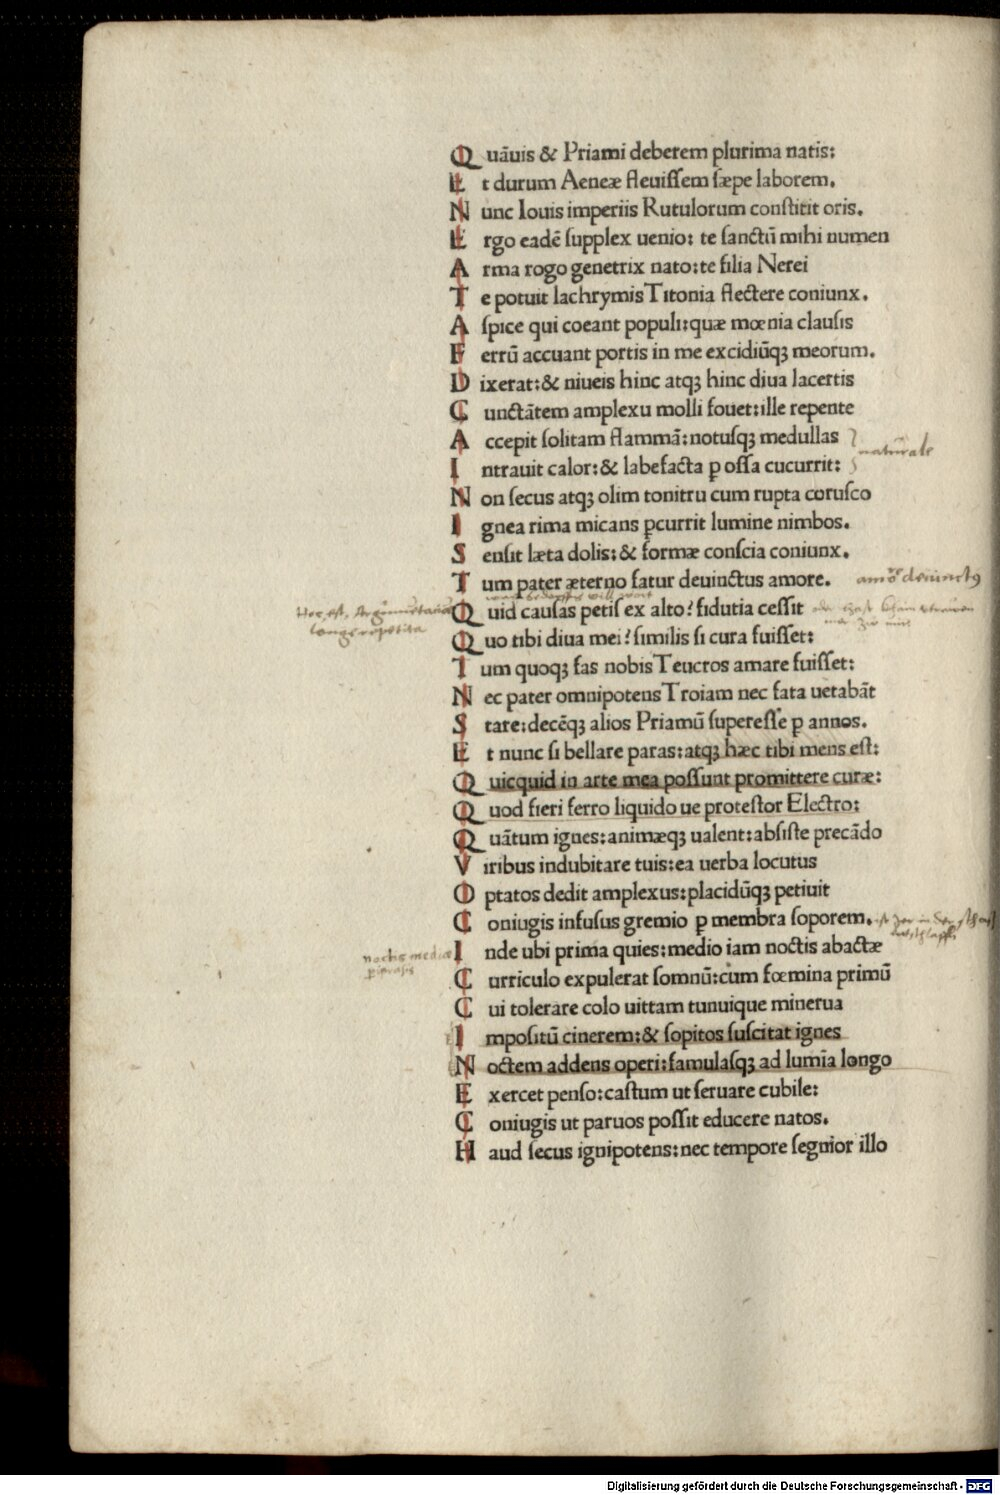 Quāuis & Priami deberem plurima natis:
Et durum Aeneæ fleuiſſem ſæpe laborem.
Nunc Iouis imperiis Rutulorum conſtitit oris.
Ergo eadē ſupplex uenio: te ſanctū mihi numen
Arma rogo genetrix nato: te filia Nerei
Te potuit lachrymis Titonia flectere coniunx.
Aſpice qui coeant populi: quæ mœnia clauſis
Ferrū accuant portis in me excidiūqꝫ meorum.
Dixerat: & niueis hinc atqꝫ hinc diua lacertis
Cunctātem amplexu molli fouet: ille repente
Accepit ſolitam flammā: notuſqꝫ medullas
naturale
Intrauit calor: & labefacta ꝑ oſſa cucurrit:
Non ſecus atqꝫ olim tonitru cum rupta coruſco
Ignea rima micans ꝑcurrit lumine nimbos.
Senſit læta dolis: & formæ conſcia coniunx.
Tum pater æterno fatur deuinctus amore.
Quid cauſas petis ex alto? fidutia ceſſit
longe repetita
Quo tibi diua mei? ſimilis ſi cura fuiſſet:
Tum quoqꝫ fas nobis Teucros amare fuiſſet:
Nec pater omnipotens Troiam nec fata uetabāt
Stare: decēqꝫ alios Priamū ſupereſſe ꝑ annos.
Et nunc ſi bellare paras: atqꝫ hæc tibi mens eſt:
Quicquid in arte mea poſſunt promittere curæ:
Quod fieri ferro liquido ue proteſtor Electro:
Quātum ignes: animæqꝫ ualent: abſiſte precādo
Viribus indubitare tuis: ea uerba locutus
Optatos dedit amplexus: placidūqꝫ petiuit
Coniugis infuſus gremio ꝑ membra ſoporem.
Inde ubi prima quies: medio iam noctis abactæ
noctis mediæ
Curriculo expulerat ſomnū: cum fœmina primū
Cui tolerare colo uittam tunuique minerua
Impoſitū cinerem: & ſopitos ſuſcitat ignes
Noctem addens operi: famulaſqꝫ ad lumīa longo
Exercet penſo: caſtum ut ſeruare cubile:
Coniugis ut paruos poſſit educere natos.
Haud ſecus ignipotens: nec tempore ſegnior illo
Digitalisierung gefördert durch die Deutsche Forschungsgemeinschaft - DFG